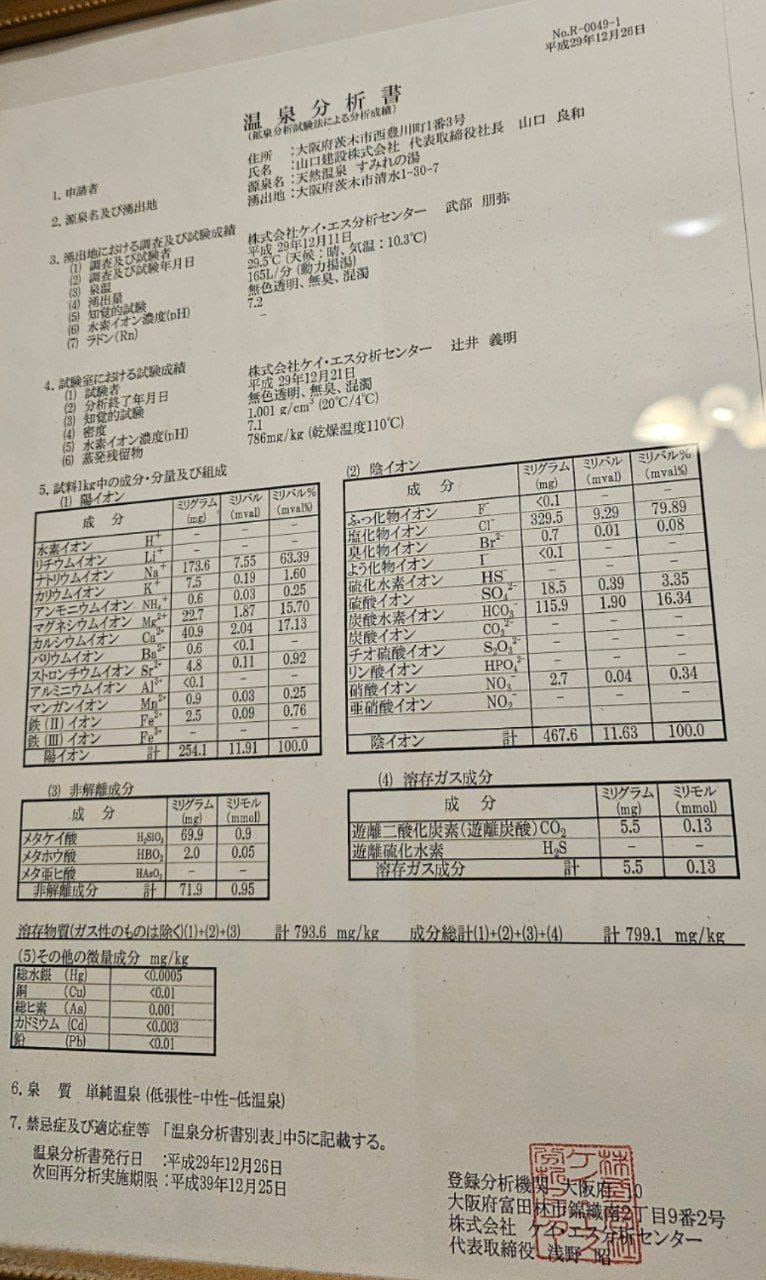 No.R-0049-1
平成29年12月26日
温泉分析書
(鉱泉分析試験法による分析成績)
1. 申請者 住所 :大阪府茨木市西豊川町1番3号
氏名 :山口建設株式会社 代表取締役社長 山口 良和
2. 源泉名及び湧出地 源泉名 :天然温泉 すみれの湯
湧出地 :大阪府茨木市清水1-30-7
3. 湧出地における調査及び試験成績
(1) 調査及び試験者 株式会社ケイ・エス分析センター 武部 朋弥
(2) 調査及び試験年月日 平成 29年12月11日
(3) 泉温 29.5℃ (天候:晴、気温:10.3℃)
(4) 湧出量 165L/分 (動力揚湯)
(5) 知覚的試験 無色透明、無臭、混濁
(6) 水素イオン濃度(pH) 7.2
(7) ラドン(Rn) −
4. 試験室における試験成績
(1) 試験者 株式会社ケイ・エス分析センター 辻井 義明
(2) 分析終了年月日 平成 29年12月21日
(3) 知覚的試験 無色透明、無臭、混濁
(4) 密度 1.001 g/cm³ (20℃/4℃)
(5) 水素イオン濃度(pH) 7.1
(6) 蒸発残留物 786mg/kg (乾燥温度110℃)
5. 試料1kg中の成分・分量及び組成
(1) 陽イオン
成 分 ミリグラム(mg) ミリバル(mval) ミリバル%(mval%)
水素イオン H⁺ − − −
リチウムイオン Li⁺ − − −
ナトリウムイオン Na⁺ 173.6 7.55 63.39
カリウムイオン K⁺ 7.5 0.19 1.60
アンモニウムイオン NH₄⁺ 0.6 0.03 0.25
マグネシウムイオン Mg²⁺ 22.7 1.87 15.70
カルシウムイオン Ca²⁺ 40.9 2.04 17.13
バリウムイオン Ba²⁺ 0.6 <0.1 −
ストロンチウムイオン Sr²⁺ 4.8 0.11 0.92
アルミニウムイオン Al³⁺ <0.1 − −
マンガンイオン Mn²⁺ 0.9 0.03 0.25
鉄(II)イオン Fe²⁺ 2.5 0.09 0.76
鉄(III)イオン Fe³⁺ − − −
陽イオン 計 254.1 11.91 100.0
(2) 陰イオン
成 分 ミリグラム(mg) ミリバル(mval) ミリバル%(mval%)
ふっ化物イオン F⁻ <0.1 − −
塩化物イオン Cl⁻ 329.5 9.29 79.89
臭化物イオン Br²⁻ 0.7 0.01 0.08
よう化物イオン I⁻ <0.1 − −
硫化水素イオン HS⁻ − − −
硫酸イオン SO₄²⁻ 18.5 0.39 3.35
炭酸水素イオン HCO₃⁻ 115.9 1.90 16.34
炭酸イオン CO₃²⁻ − − −
チオ硫酸イオン S₂O₃²⁻ − − −
リン酸イオン HPO₄²⁻ − − −
硝酸イオン NO₃⁻ 2.7 0.04 0.34
亜硝酸イオン NO₂⁻ − − −
陰イオン 計 467.6 11.63 100.0
(3) 非解離成分
成 分 ミリグラム(mg) ミリモル(mmol)
メタケイ酸 H₂SiO₃ 69.9 0.9
メタホウ酸 HBO₂ 2.0 0.05
メタ亜ヒ酸 HAsO₂ − −
非解離成分 計 71.9 0.95
(4) 溶存ガス成分
成 分 ミリグラム(mg) ミリモル(mmol)
遊離二酸化炭素(遊離炭酸)CO₂ 5.5 0.13
遊離硫化水素 H₂S − −
溶存ガス成分 計 5.5 0.13
溶存物質(ガス性のものは除く)(1)+(2)+(3) 計 793.6 mg/kg 成分総計(1)+(2)+(3)+(4) 計 799.1 mg/kg
(5)その他の微量成分 mg/kg
総水銀 (Hg) <0.0005
銅 (Cu) <0.01
総ヒ素 (As) 0.001
カドミウム (Cd) <0.003
鉛 (Pb) <0.01
6. 泉 質 単純温泉 (低張性-中性-低温泉)
7. 禁忌症及び適応症等 「温泉分析書別表」中5に記載する。
温泉分析書発行日 :平成29年12月26日
次回再分析実施期限 :平成39年12月25日
登録分析機関 大阪府 10
大阪府富田林市錦織南2丁目9番2号
株式会社 ケイ・エス分析センター
代表取締役 浅野 昭